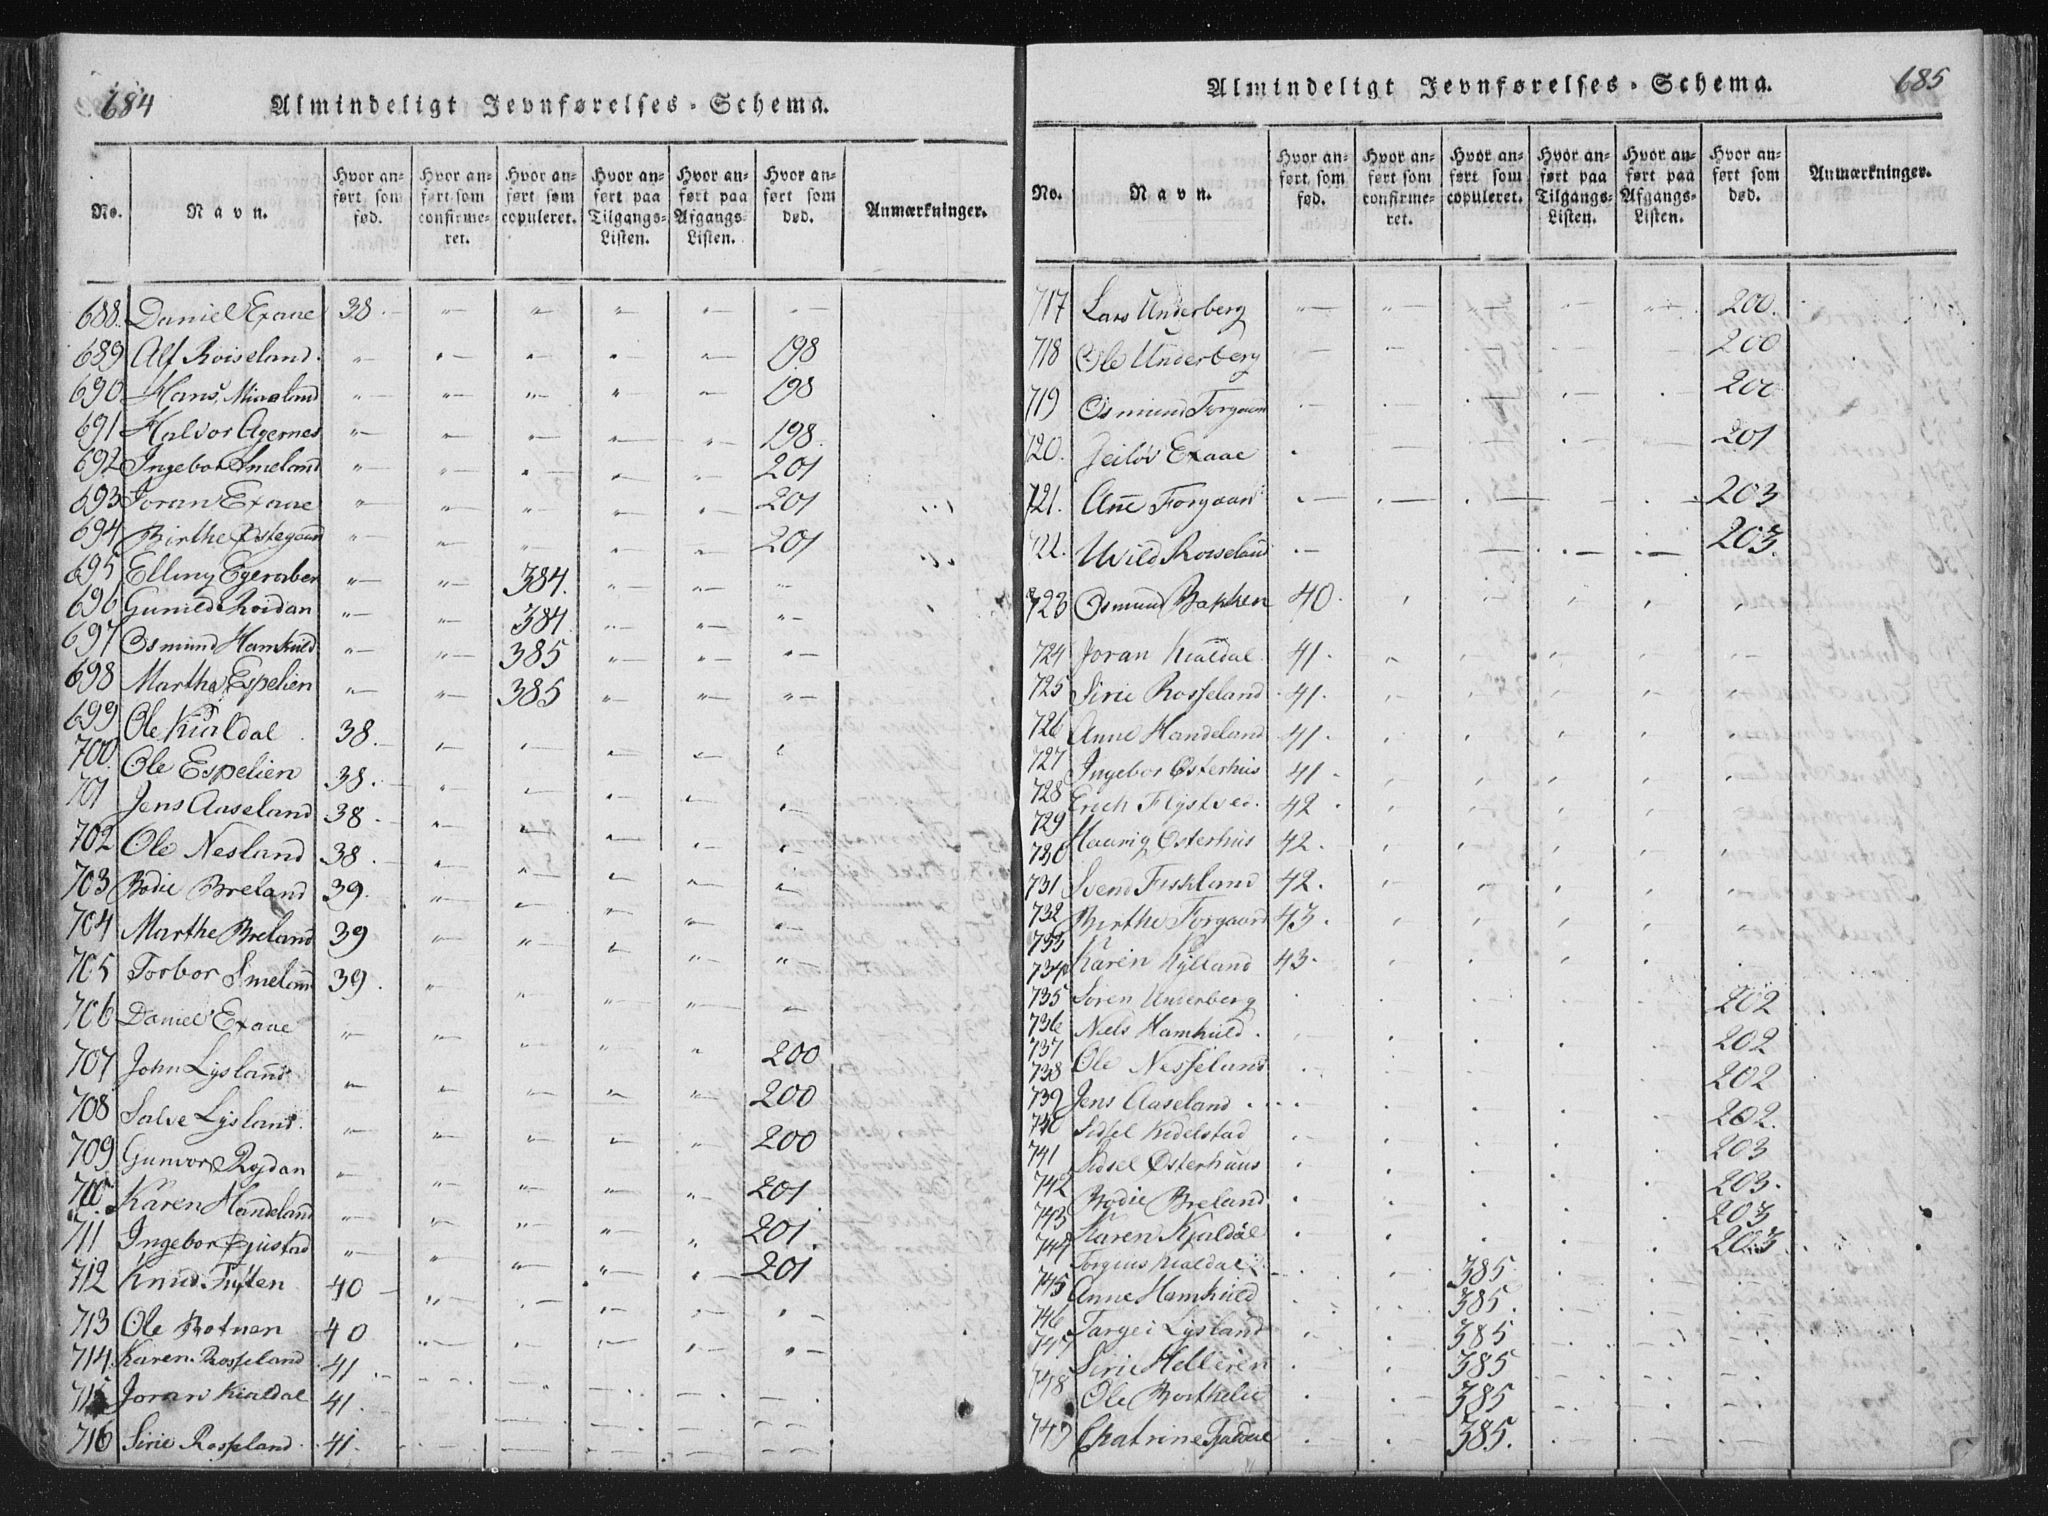 684
Almindeligt Jevnførelses-Schema.
No. Navn. Hvor anført som fød. Hvor anført som confirmeret. Hvor anført som copuleret. Hvor anført paa Tilgangs-Listen. Hvor anført paa Afgangs-Listen. Hvor anført som død. Anmærkninger.
688. Daniel Exaae 38.
689 Alf Roiseland. 198
690 Hans 198
691 Halvor Agernes 198.
692 Ingebor Smeland 201
693 Joran Exaae 201
694 Birthe Østegaard 201
695 Elling 384.
696 Gunild Roidan 384
697 Osmund Hamkuld 385
698 Marthe Espelien 385
699 Ole Kialdal 38.
700. Ole Espelien 38.
701 Jens Aaseland 38
702 Ole Nesland 38
703 Bodie Breland 39.
704 Marthe Breland 39
705 Torbor Smeland 39.
706 Daniel Exaae
707 John Lysland 200
708 Salve Lysland. 200
709 Gunvor Rojdan 200
710 Karen Handeland 201.
711 Ingebor 201.
712 Knud Tytten 40 201
713 Ole 40
714. Karen Rosseland 41
715 Joran Kialdal 41.
716 Sirie Rosseland. 41
685
Almindeligt Jevnførelses-Schema.
No. Navn. Hvor anført som fød. Hvor anført som confirmeret. Hvor anført som copuleret. Hvor anført paa Tilgangs-Listen. Hvor anført paa Afgangs-Listen. Hvor anført som død. Anmærkninger.
717 Lars Underberg 200.
718 Ole Underberg 200
719 Osmund Forgaun 200
720. Exaae 201
721. Ane Forgaan 203
722. Uvild Roiseland 203.
723 Osmund Bakken 40.
724 Joran Kialdal. 41.
725 Sirie Rosseland 41.
726 Anne Handeland 41.
727 Ingebor Østerhus 41.
728 Erich 42.
729 Haavig Østerhus 42.
730
731 Svend Fiskland 42.
732 Birthe Forgaard 43.
733 Karen Kylland 43.
734
735 Søren Underberg 202
736 Niels Hamkuld. 202
737 Ole Nesseland 202
738
739 Jens Aaseland 202.
740 Sidsel Kedelstad 203
741 Sidsel Østerhuus 203.
742 Bodie Breland 203
743 Karen Kjaldal 203
744 Torgius Kialdal 385.
745 Anne Hamkuld 385.
746 Targei Lysland 385
747 Sirie Helleren 385
748 Ole 385
749 Chatrine 385.